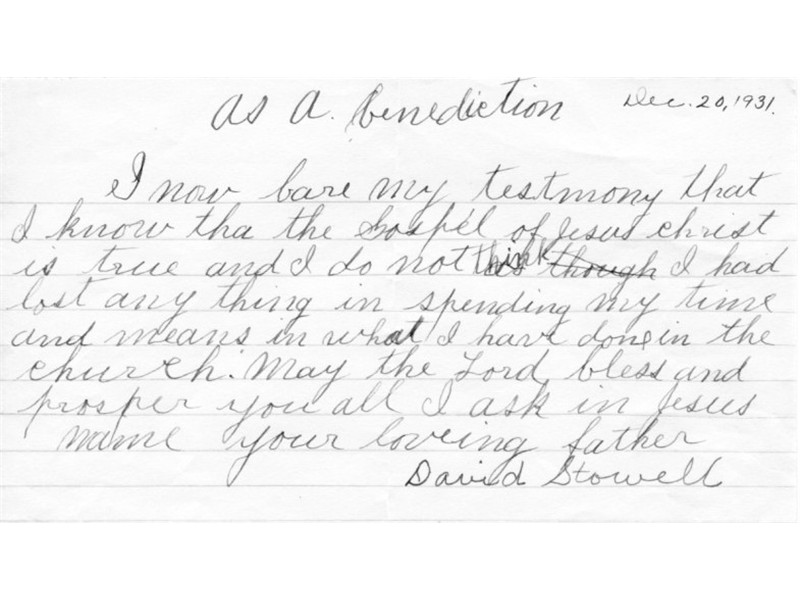 As A. Benediction Dec. 20, 1931.
I now bare my testmony that
I know tha the Gospel of Jesus christ
is true and I do not think though I had
lost any thing in spending my time
and means in what I have done in the
church. May the Lord bless and
prosper you all I ask in Jesus
name your loveing father
David Stowell